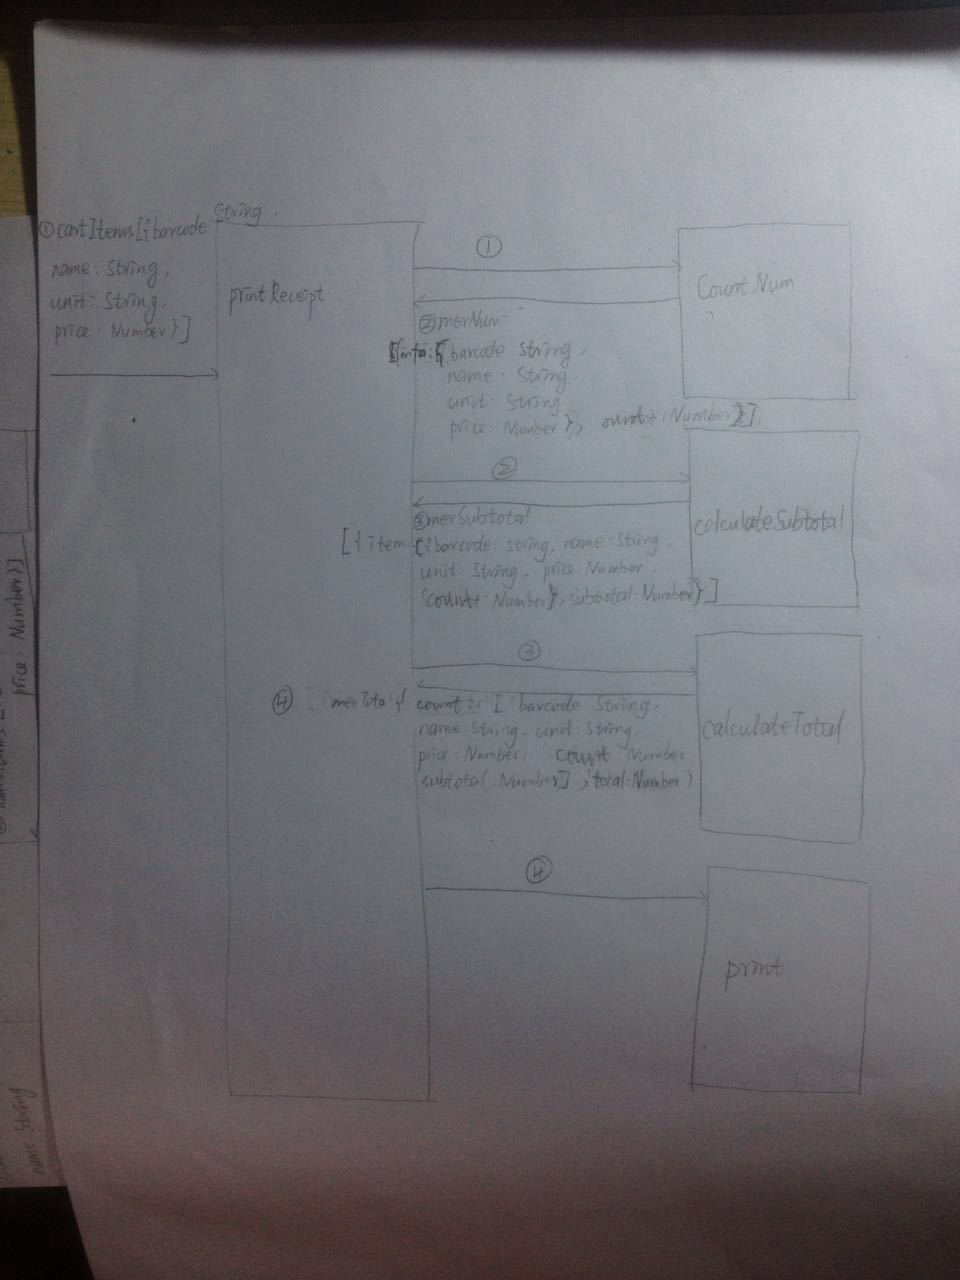 String,
① cartItems[{barcode
name: String,
unit: String,
price: Number}]
printReceipt
①
CountNum
② merNum
barcode String,
name: String,
unit: String
price: Number}, count: Number}]
②
calculateSubtotal
③ merSubtotal
[{item:[{barcode: string, name: String,
unit: String, price: Number
count: Number}, subtotal: Number}]
③
calculateTotal
④ merTotal{ count: [ barcode: String,
name: String, unit: String,
price: Number, count Number
subtotal: Number] , total: Number}
④
print
price: Number}]
name String